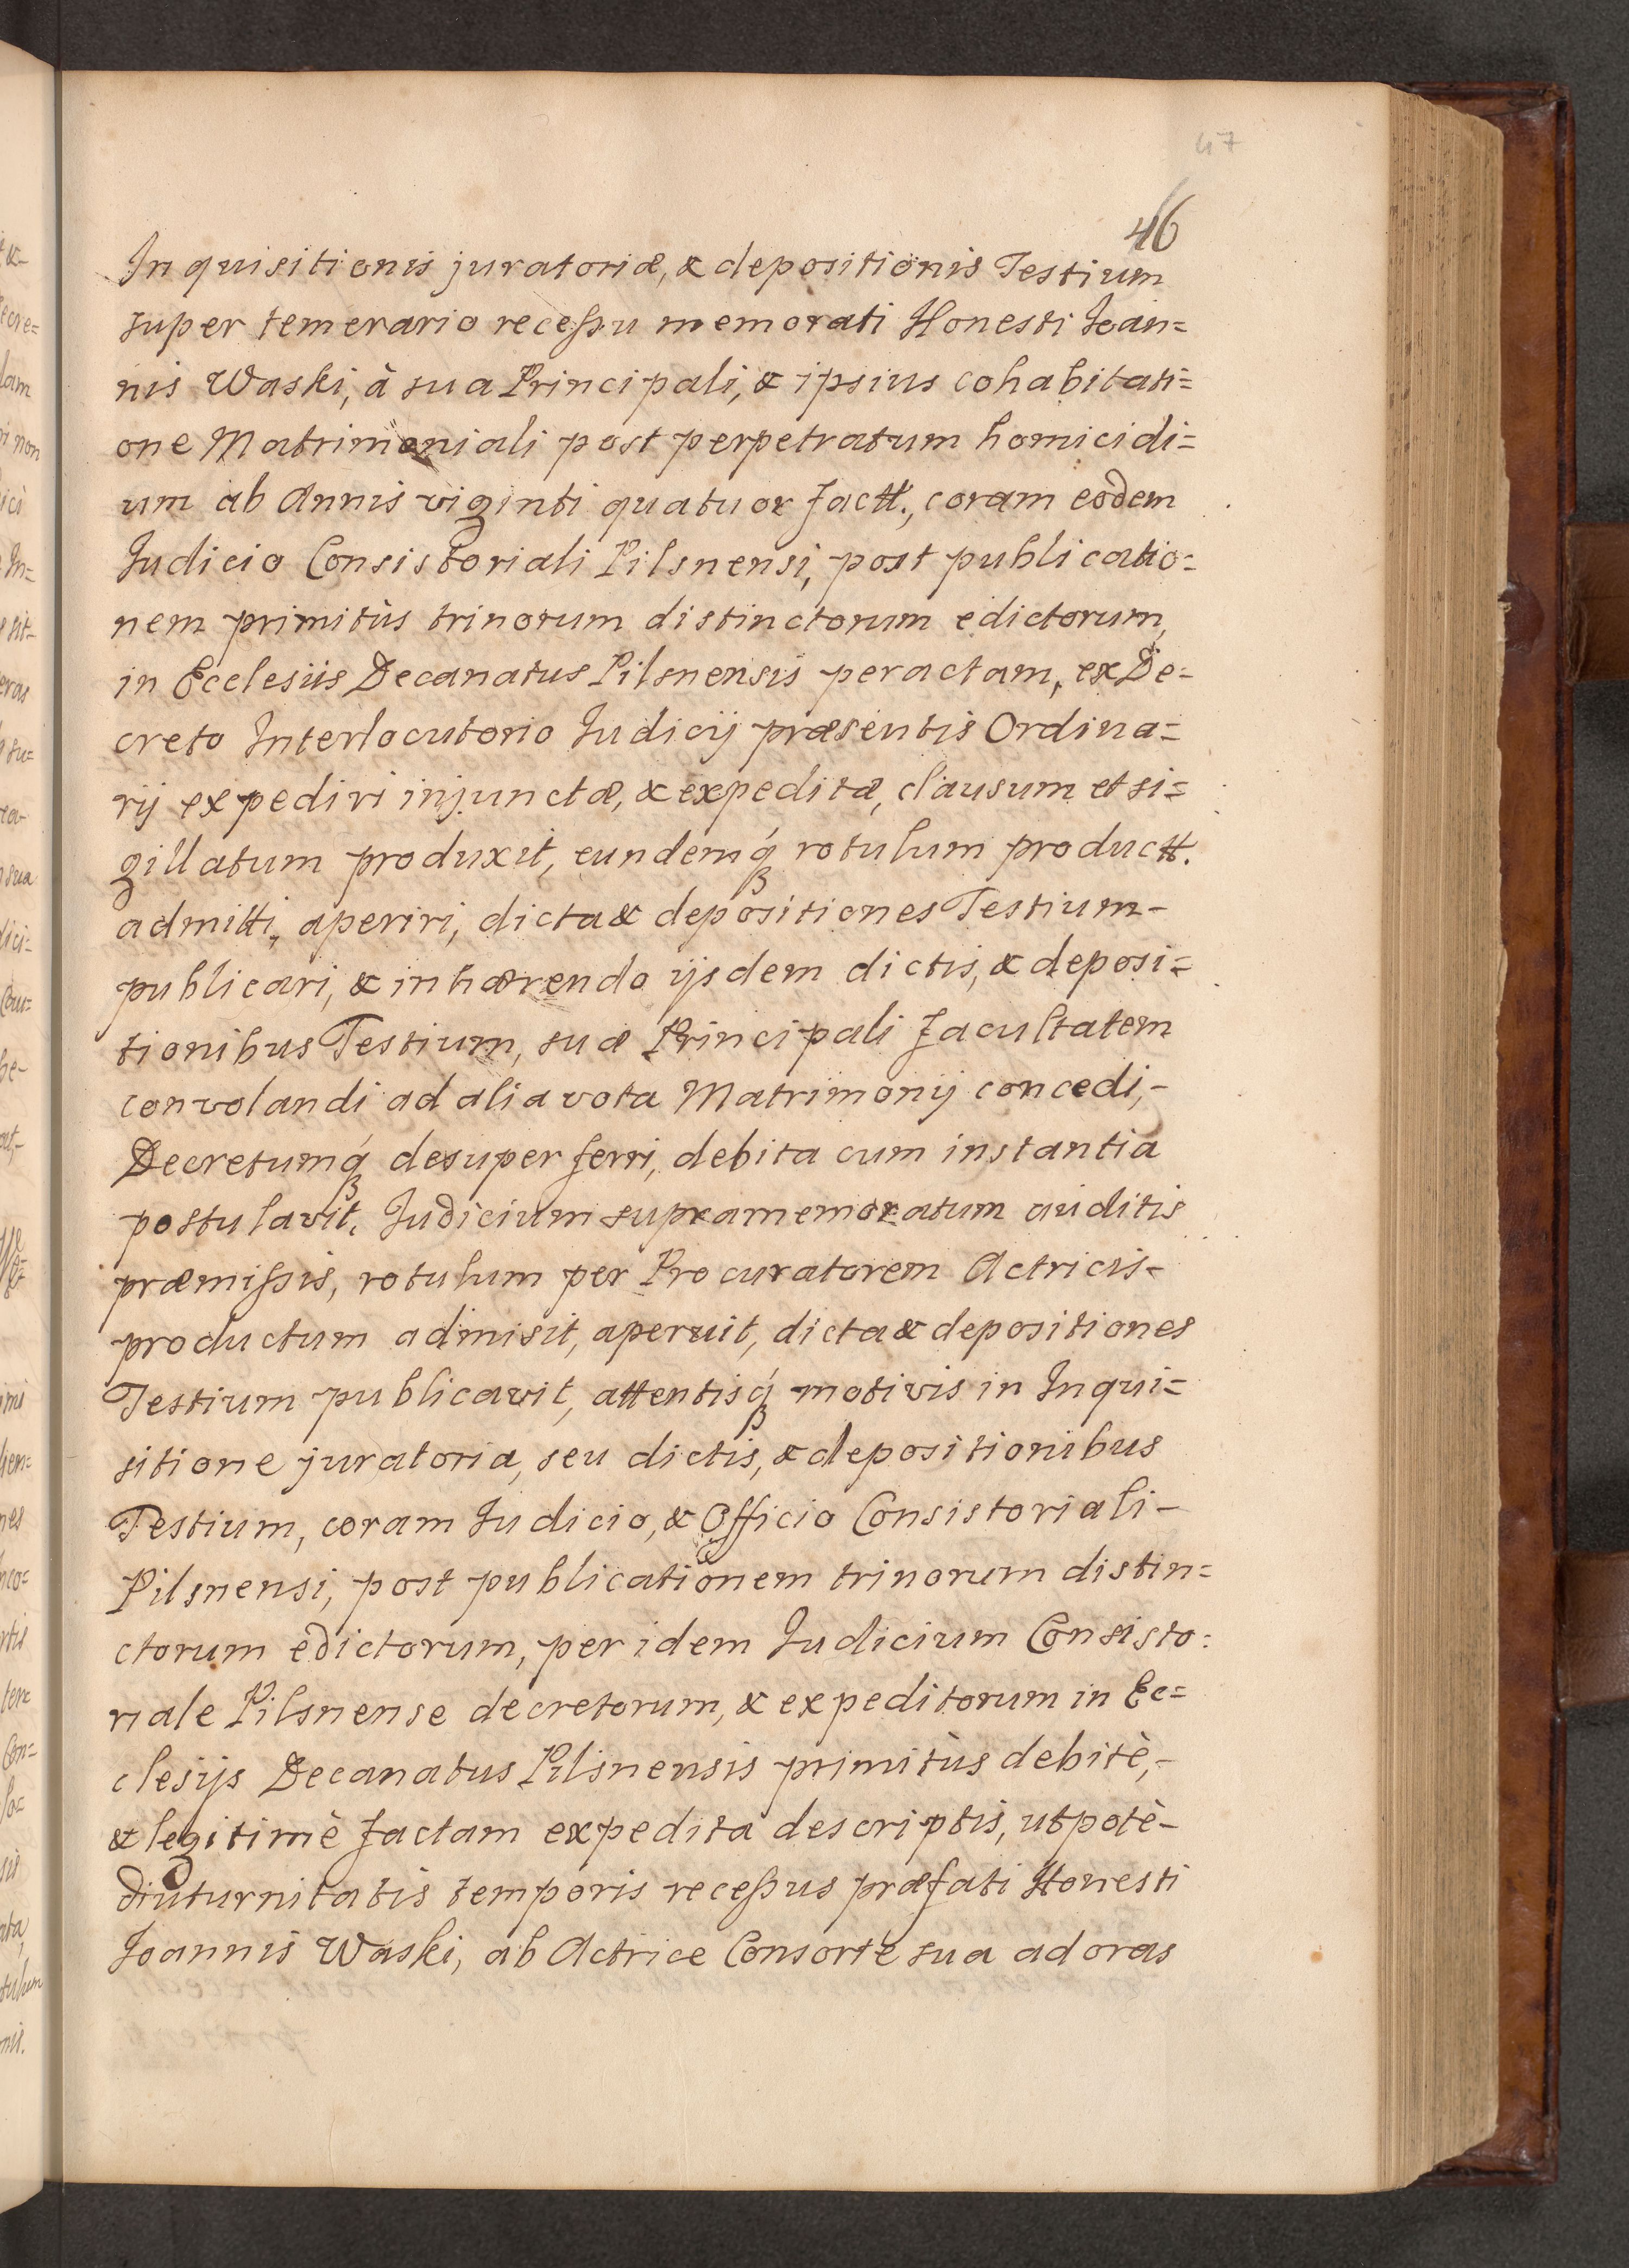 47
46
Inquisitionis juratoriæ, & depositionis Testium
super temerario recessu memorati Honesti Ioan=
nis Waski, à sua Principali, & ipsius cohabitati=
one Matrimoniali post perpetratum homicidi=
um ab Annis viginti quatuor factt., coram eodem
Iudicio Consistoriali Pilsnensi, post publicatio=
nem primitùs trinorum distinctorum edictorum,
in Ecclesiis Decanatus Pilsnensis peractam, ex De=
creto Interlocutorio Iudicij præsentis Ordina=
rij expediri injunctæ, & expeditæ, clausum et si=
gillatum produxit, eundemq́ꝫ rotulum productt.
admitti, aperiri, dicta & depositiones Testium-
publicari, & inhærendo ijsdem dictis, & deposi=
tionibus Testium, suæ Principali facultatem
convolandi ad alia vota Matrimonij concedi,-
Decretumq́ꝫ desuper ferri, debita cum instantia
postulavit. Iudicium supramemoratum auditis
præmissis, rotulum per Procuratorem Actricis-
productum admisit, aperuit, dicta & depositiones
Testium publicavit, attentisq́ꝫ motivis in Inqui=
sitione juratoria, seu dictis, & depositionibus
Testium, coram Iudicio, & Officio Consistoriali-
Pilsnensi, post publicationem trinorum distin=
ctorum edictorum, per idem Iudicium Consisto=
riale Pilsnense decretorum, & expeditorum in Ec=
clesijs Decanatus Pilsnensis primitùs debitè,-
& legitimè factam expedita descriptis, utpotè-
diuturnitatis temporis recessus præfati Honesti
Ioannis Waski, ab Actrice Consorte sua ad oras